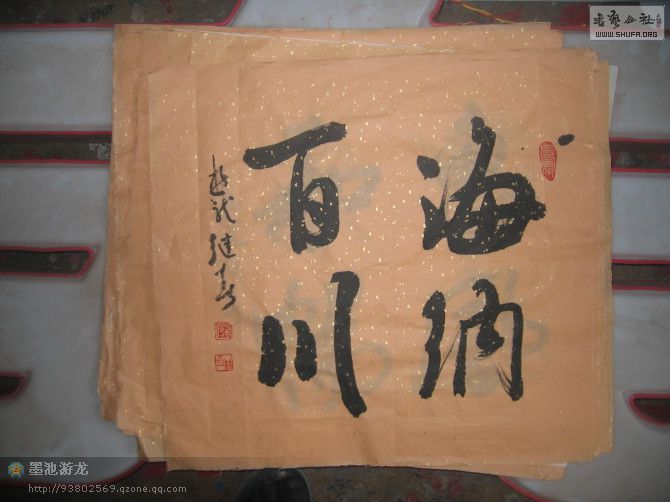 海纳
百川
游龙继春
书艺公社
WWW.SHUFA.ORG
墨池游龙
http://93802569.qzone.qq.com